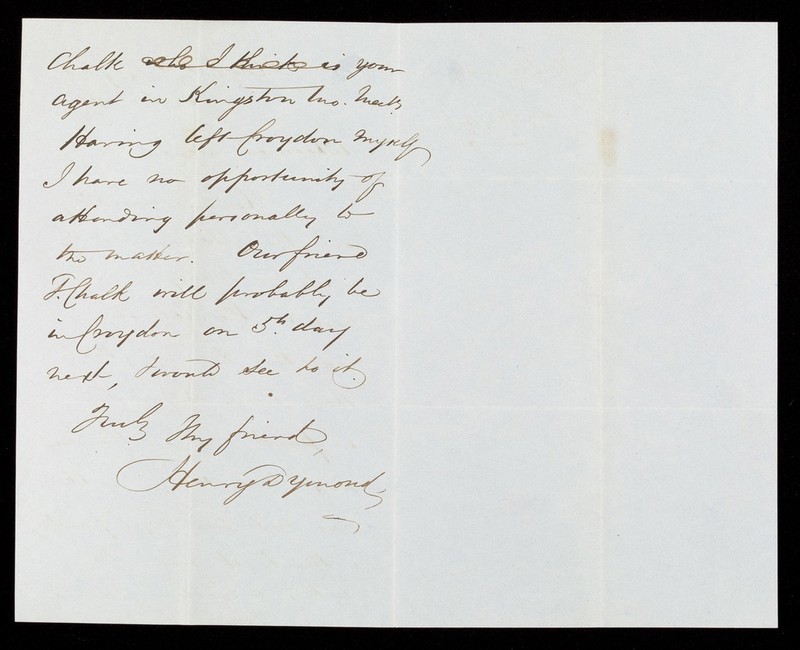 Chalk who I think is your
agent in Kingston Mo. Meetg
Having left Croydon myself
I have no opportunity of
attending personally to
the matter. Our friend
F. Chalk will probably be
in Croydon on 5th day
next, & would see to it.
Truly Thy friend,
Henry Dymond